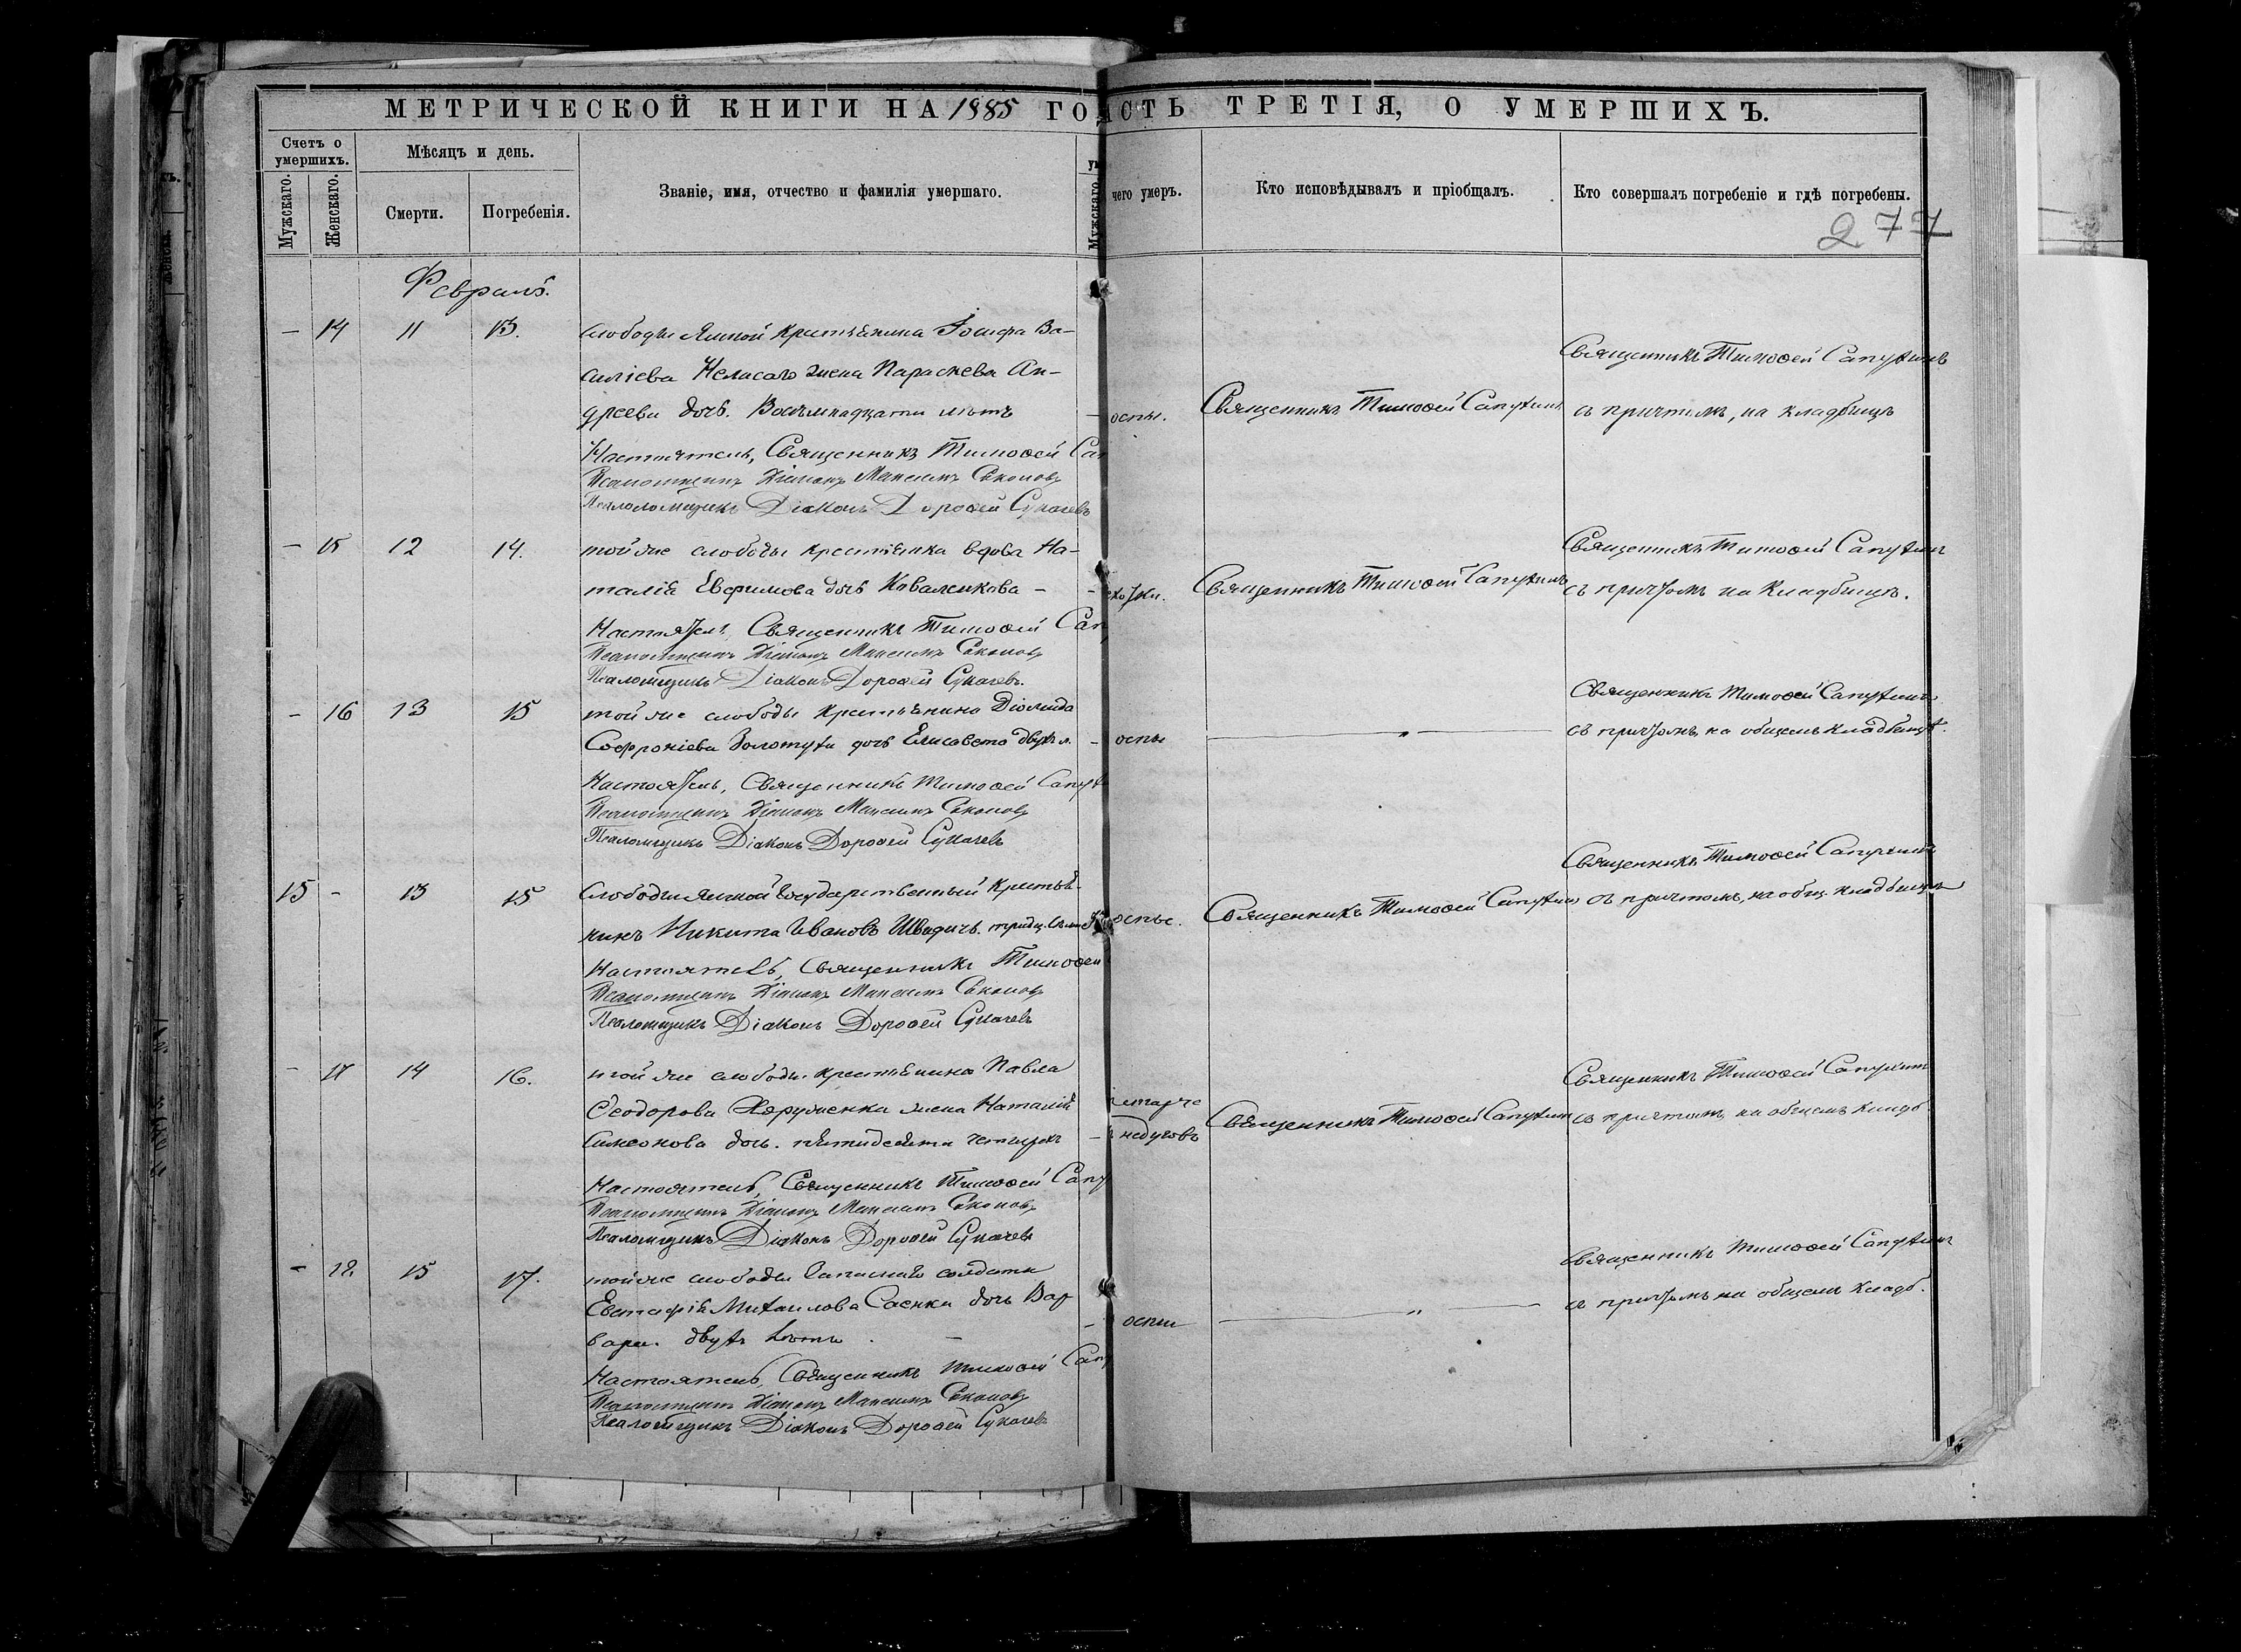 МЕТРИЧЕСКОЙ КНИГИ НА 1885 ГОД
СТЬ ТРЕТІЯ, О УМЕРШИХЪ.
Счетъ о умершихъ.
Мужскаго.
Женскаго.
Мѣсяцъ и день.
Смерти.
Погребенія.
Званіе, имя, отчество и фамилія умершаго.
Мужскаго
чего умеръ.
Кто исповѣдывалъ и пріобщалъ.
Кто совершалъ погребеніе и гдѣ погребены.
277
Февраль.
— 14 11 13. слободы Ямной крестьянина Іосифа Ва-
силіева жена Параскева Ан-
дреева дочь. Восьмнадцати лѣтъ —
оспы. Священникъ Тимоѳей Сапухинъ
Священникъ Тимоѳей Сапухинъ
съ причтомъ, на кладбищѣ
Настоятель, Священникъ Тимоѳей Сап
Псаломщикъ Діаконъ Максимъ
Псаломщикъ Діаконъ Дороѳей Сукачевъ
— 15 12 14. той же слободы крестьянка вдова На-
талія Евфимова дочь Коваленкова — —
Священникъ Тимоѳей Сапухинъ
Священникъ Тимоѳей Сапухинъ
съ причтомъ на кладбищѣ.
Настоятель, Священникъ Тимоѳей Сап
Псаломщикъ Діаконъ Максимъ
Псаломщикъ Діаконъ Дороѳей Сукачевъ.
— 16 13 15 той же слободы крестьянина Діомида
Софроніева Золотухи дочь Елисавета двухъ л. —
оспы — „ —
Священникъ Тимоѳей Сапухинъ
съ причтомъ на общемъ кладбищѣ.
Настоятель, Священникъ Тимоѳей Сапух
Псаломщикъ Діаконъ Максимъ
Псаломщикъ Діаконъ Дороѳей Сукачевъ
15 — 13 15 Слободы Ямной Государственный крестья-
нинъ Никита Ивановъ
оспы. Священникъ Тимоѳей Сапухинъ
Священникъ Тимоѳей Сапухинъ
съ причтомъ, на общ. кладбищѣ
Настоятель, Священникъ Тимоѳей
Псаломщикъ Діаконъ Максимъ
Псаломщикъ Діаконъ Дороѳей Сукачевъ
— 17 14 16. той же слободы крестьянина Павла
Ѳеодорова жена Наталія
Симеонова дочь. пятидесяти четырехъ —
старче
недуговъ Священникъ Тимоѳей Сапухинъ
Священникъ Тимоѳей Сапухинъ
съ причтомъ на общемъ кладб.
Настоятель, Священникъ Тимоѳей Сапу
Псаломщикъ Діаконъ Максимъ
Псаломщикъ Діаконъ Дороѳей Сукачевъ
— 18 15 17. той же слободы запаснаго солдата
Евстафія Михаилова Саенки дочь Вар
вара. двухъ лѣтъ. — —
оспы — „ —
Священникъ Тимоѳей Сапухинъ
съ причтомъ на общемъ кладб.
Настоятель, Священникъ Тимоѳей Сапу
Псаломщикъ Діаконъ Максимъ
Псаломщикъ Діаконъ Дороѳей Сукачевъ